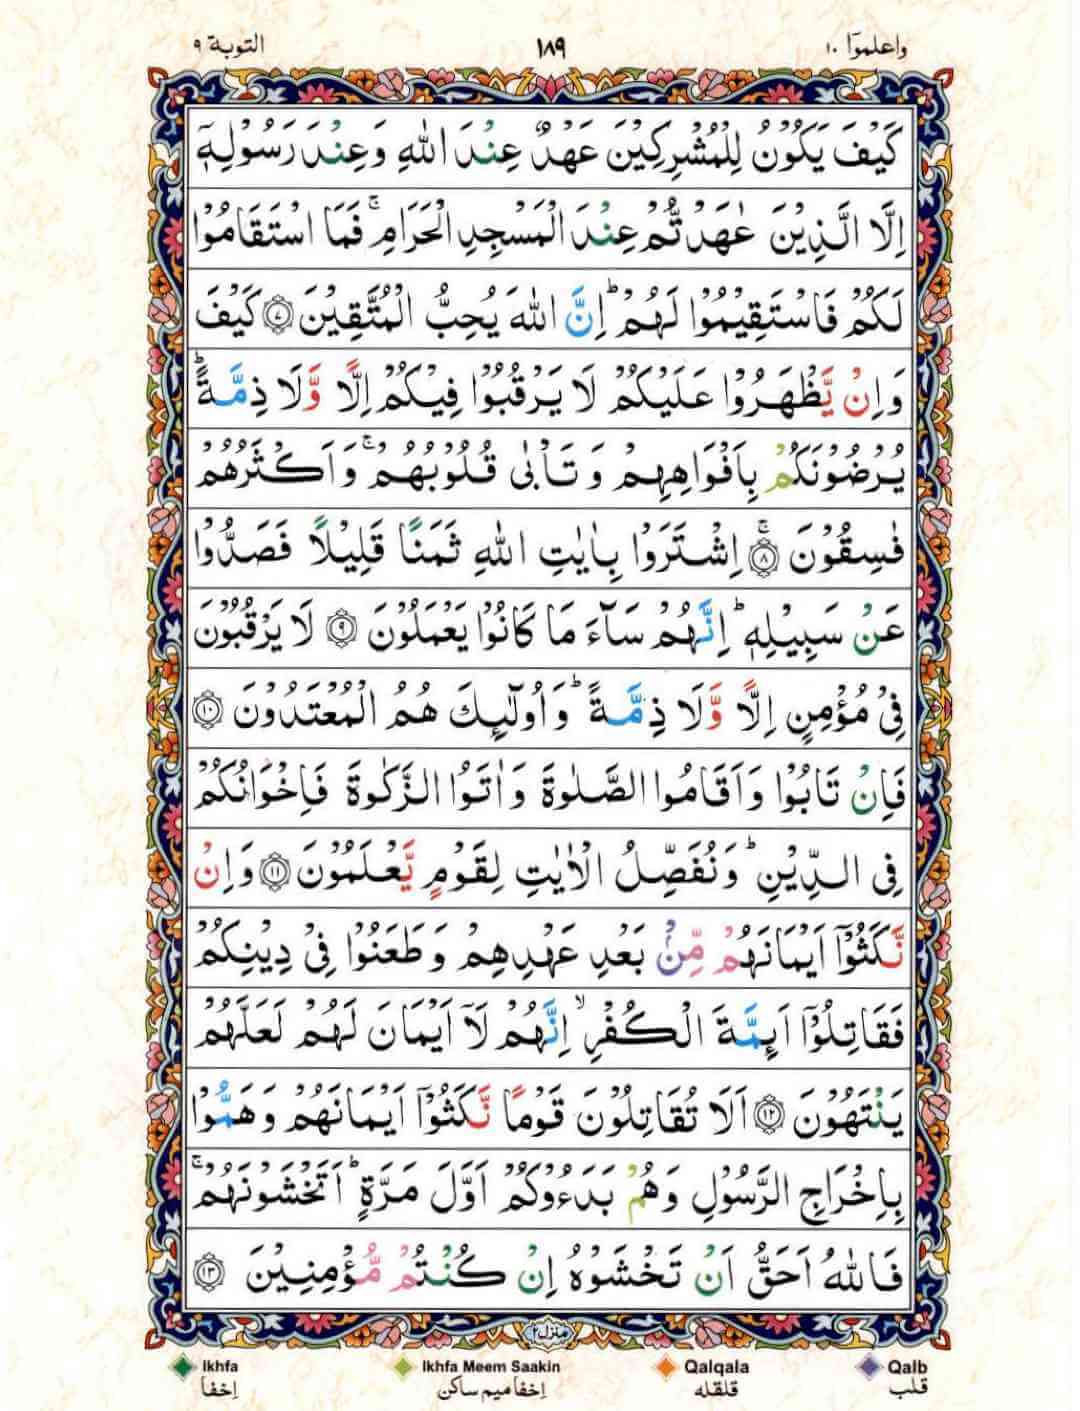 واعلموٓا ١٠ ١٨٩ التوبة ٩
كَيۡفَ يَكُوۡنُ لِلۡمُشۡرِكِيۡنَ عَهۡدٌ عِنۡدَ اللّٰهِ وَعِنۡدَ رَسُوۡلِهٖۤ
اِلَّا الَّذِيۡنَ عٰهَدۡتُّمۡ عِنۡدَ الۡمَسۡجِدِ الۡحَرَامِ‌ۚ فَمَا اسۡتَقَامُوۡا
لَكُمۡ فَاسۡتَقِيۡمُوۡا لَهُمۡ‌ؕ اِنَّ اللّٰهَ يُحِبُّ الۡمُتَّقِيۡنَ ٧ كَيۡفَ
وَاِنۡ يَّظۡهَرُوۡا عَلَيۡكُمۡ لَا يَرۡقُبُوۡا فِيۡكُمۡ اِلًّا وَّلَا ذِمَّةً‌ؕ
يُرۡضُوۡنَكُمۡ بِاَفۡوَاهِهِمۡ وَتَاۡبٰى قُلُوۡبُهُمۡ‌ۚ وَاَكۡثَرُهُمۡ
فٰسِقُوۡنَ‌ۚ ٨ اِشۡتَرَوۡا بِاٰيٰتِ اللّٰهِ ثَمَنًا قَلِيۡلًا فَصَدُّوۡا
عَنۡ سَبِيۡلِهٖ‌ؕ اِنَّهُمۡ سَآءَ مَا كَانُوۡا يَعۡمَلُوۡنَ ٩ لَا يَرۡقُبُوۡنَ
فِىۡ مُؤۡمِنٍ اِلًّا وَّلَا ذِمَّةً‌ ؕ وَاُولٰٓٮِٕكَ هُمُ الۡمُعۡتَدُوۡنَ ١٠
فَاِنۡ تَابُوۡا وَاَقَامُوا الصَّلٰوةَ وَاٰتَوُا الزَّكٰوةَ فَاِخۡوَانُكُمۡ
فِى الدِّيۡنِ‌ؕ وَنُفَصِّلُ الۡاٰيٰتِ لِقَوۡمٍ يَّعۡلَمُوۡنَ ١١ وَاِنۡ
نَّكَثُوۡۤا اَيۡمَانَهُمۡ مِّنۡۢ بَعۡدِ عَهۡدِهِمۡ وَطَعَنُوۡا فِىۡ دِيۡنِكُمۡ
فَقَاتِلُوۡۤا اَٮِٕمَّةَ الۡكُفۡرِ‌ۙ اِنَّهُمۡ لَاۤ اَيۡمَانَ لَهُمۡ لَعَلَّهُمۡ
يَنۡتَهُوۡنَ ١٢ اَلَا تُقَاتِلُوۡنَ قَوۡمًا نَّكَثُوۡۤا اَيۡمَانَهُمۡ وَهَمُّوۡا
بِاِخۡرَاجِ الرَّسُوۡلِ وَهُمۡ بَدَءُوۡكُمۡ اَوَّلَ مَرَّةٍ‌ ؕ اَتَخۡشَوۡنَهُمۡ‌ ۚ
فَاللّٰهُ اَحَقُّ اَنۡ تَخۡشَوۡهُ اِنۡ كُنۡتُمۡ مُّؤۡمِنِيۡنَ ١٣
منزل ٢
Ikhfa Ikhfa Meem Saakin Qalqala Qalb
اِخفا اِخفا میم ساکن قلقله قلب